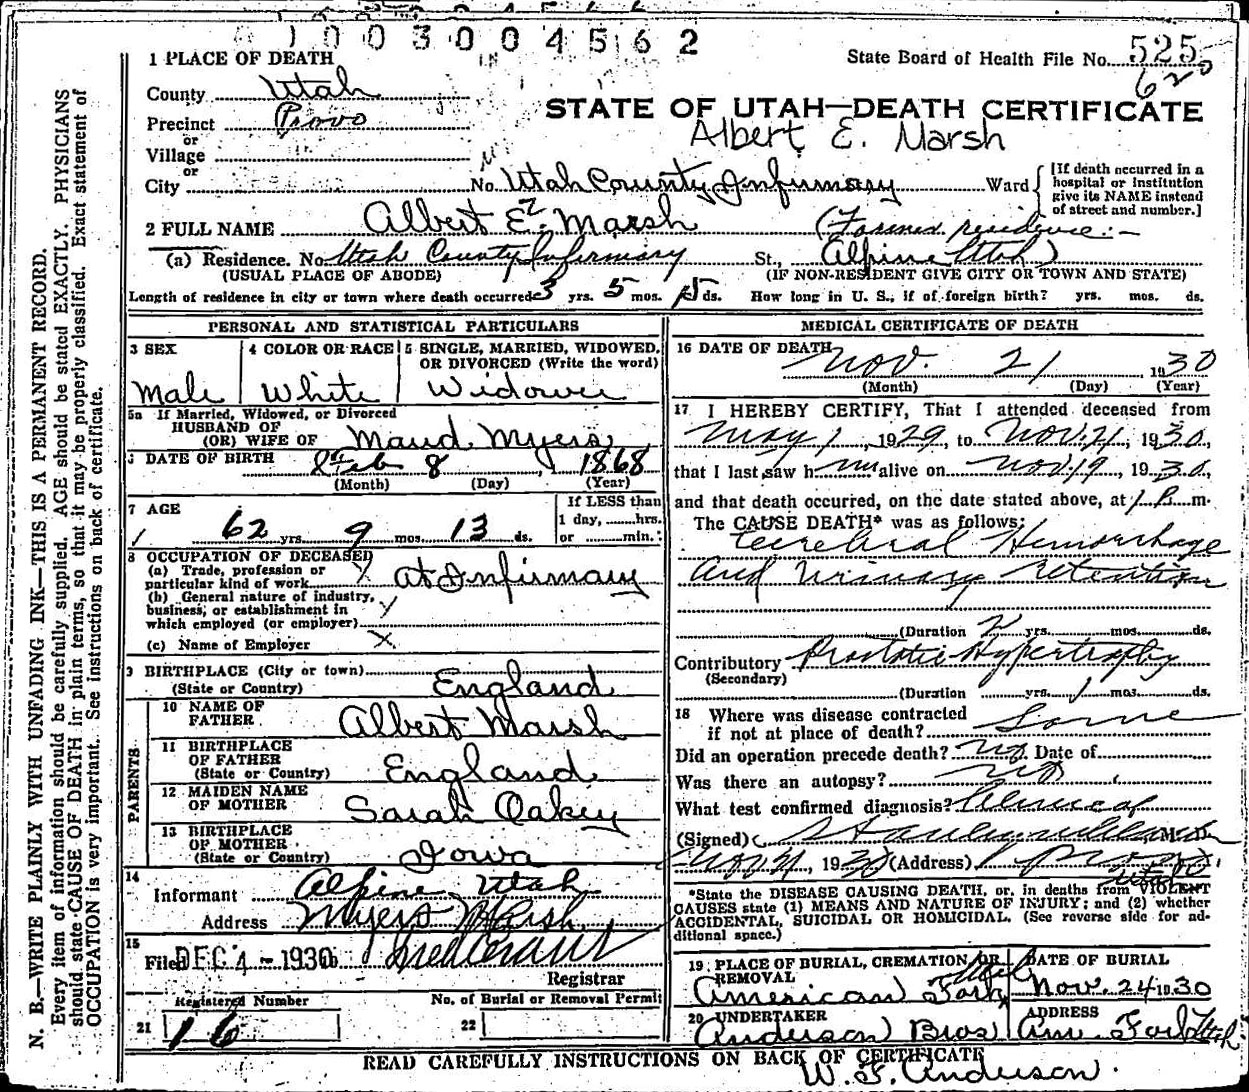 1003004562
1 PLACE OF DEATH
State Board of Health File No. 525
620
County Utah
STATE OF UTAH—DEATH CERTIFICATE
Precinct Provo
Albert E. Marsh
or
Village
or
City No. Utah County Infirmary Ward
[If death occurred in a hospital or institution give its NAME instead of street and number.]
2 FULL NAME Albert E. Marsh (Former residence:—
(a) Residence. No. Utah County Infirmary St., Alpine Utah)
(USUAL PLACE OF ABODE) (IF NON-RESIDENT GIVE CITY OR TOWN AND STATE)
Length of residence in city or town where death occurred 3 yrs. 5 mos. 15 ds. How long in U. S., if of foreign birth? yrs. mos. ds.
PERSONAL AND STATISTICAL PARTICULARS
3 SEX 4 COLOR OR RACE 5 SINGLE, MARRIED, WIDOWED, OR DIVORCED (Write the word)
Male White Widower
5a If Married, Widowed, or Divorced
HUSBAND OF
(OR) WIFE OF Maud Myers
DATE OF BIRTH Feb 8, 1868
(Month) (Day) (Year)
7 AGE If LESS than
62 yrs. 9 mos. 13 ds. 1 day, hrs.
or min.
8 OCCUPATION OF DECEASED
(a) Trade, profession or
particular kind of work at Infirmary
(b) General nature of industry,
business, or establishment in
which employed (or employer)
(c) Name of Employer X
9 BIRTHPLACE (City or town)
(State or Country) England
PARENTS
10 NAME OF
FATHER Albert Marsh
11 BIRTHPLACE
OF FATHER
(State or Country) England
12 MAIDEN NAME
OF MOTHER Sarah Oakey
13 BIRTHPLACE
OF MOTHER
(State or Country) Iowa
14
Informant Alpine, Utah
Address Myers Marsh
15
Filed DEC 4 - 1930
Registrar
Registered Number No. of Burial or Removal Permit
21 16 22
MEDICAL CERTIFICATE OF DEATH
16 DATE OF DEATH
Nov. 21, 1930
(Month) (Day) (Year)
17 I HEREBY CERTIFY, That I attended deceased from
May 1, 1929, to Nov. 21, 1930,
that I last saw him alive on Nov 19, 1930,
and that death occurred, on the date stated above, at 1 P. m.
The CAUSE DEATH* was as follows:
Cerebral Hemorrhage
and Urinary retention
(Duration 2 yrs. mos. ds.
Contributory Prostatic Hypertrophy
(Secondary)
(Duration yrs. 1 mos. ds.
18 Where was disease contracted
if not at place of death? Same
Did an operation precede death? No. Date of
Was there an autopsy? No
What test confirmed diagnosis? Clinical
(Signed) M. D.
Nov 21, 1930 (Address) Provo,
Utah
*State the DISEASE CAUSING DEATH, or, in deaths from VIOLENT
CAUSES state (1) MEANS AND NATURE OF INJURY; and (2) whether
ACCIDENTAL, SUICIDAL OR HOMICIDAL. (See reverse side for additional space.)
19 PLACE OF BURIAL, CREMATION OR REMOVAL DATE OF BURIAL
American Fork Utah Nov. 24 1930
20 UNDERTAKER ADDRESS
Anderson Bros Am. Fork Utah
READ CAREFULLY INSTRUCTIONS ON BACK OF CERTIFICATE
W. F. Anderson.
N. B.—WRITE PLAINLY WITH UNFADING INK—THIS IS A PERMANENT RECORD.
Every item of information should be carefully supplied. AGE should be stated EXACTLY. PHYSICIANS
should state CAUSE OF DEATH in plain terms, so that it may be properly classified. Exact statement of
OCCUPATION is very important. See instructions on back of certificate.